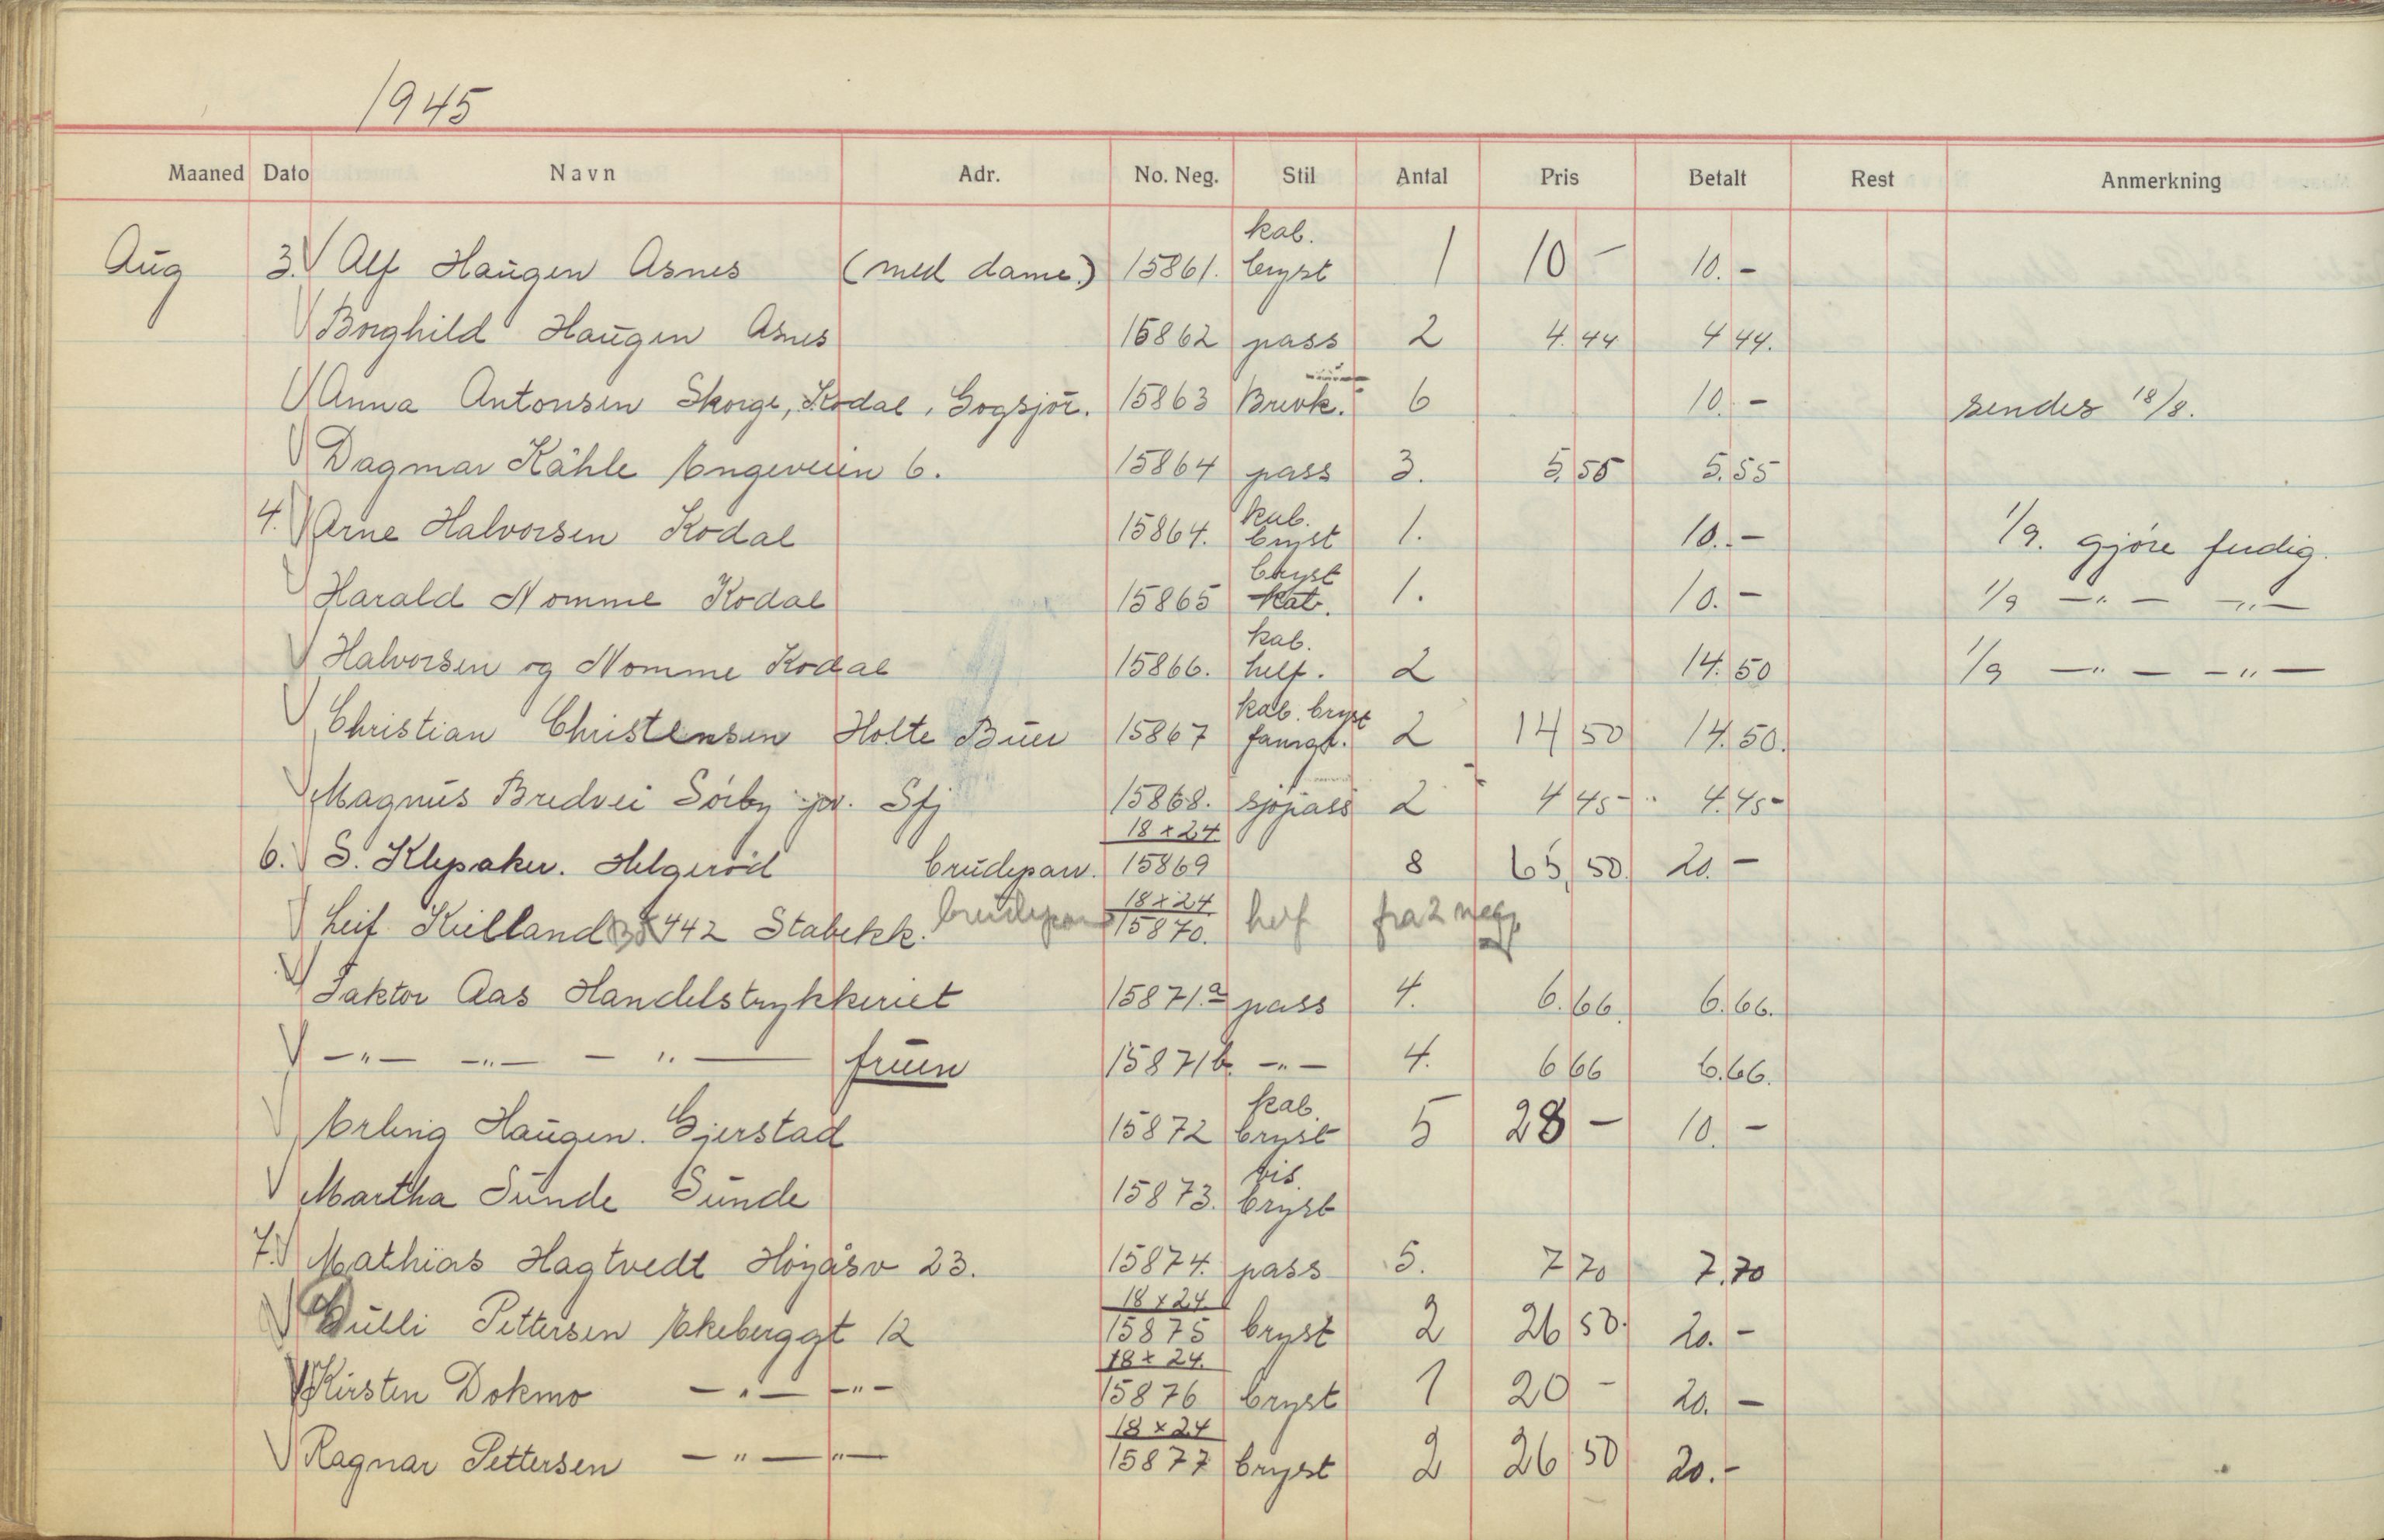 1945
Maaned Dato Navn Adr. No. Neg. Stil Antal Pris Betalt Rest Anmerkning
kab.
Aug 3. Alf Haugen Asnes (med dame.) 15861. bryst 1 10 - 10. -
Borghild Haugen Asnes 15862 pass 2 4.44 4 44.
Anna Antonsen Skorge, Kodal, Gogsjør. 15863 Brevk. 6 10. - sendes 18/8.
Dagmar Kähle Engeveien 6. 15864 pass 3. 5,55 5.55
kab.
4. Arne Halvorsen Kodal 15864. bryst 1. 10. - 1/9. gjøre ferdig.
bryst
Harald Nomme Kodal 15865 kab. 1. 10. - 1/9 -"- -"-
kab.
Halvorsen og Nomme Kodal 15866. helf. 2 14.50 1/9 -"- -"-
kab. bryst
Christian Christensen Holte Buer 15867 2 14 50 14.50.
Magnus Bredvei Sörby Sfj 15868. sjøpass 2 4 45- 4.45-
18 x 24
6. S. Klepaker. Helgerød brudepar. 15869 8 65,50. 20. -
18 x 24
Leif Kielland 442 Stabekk. brudepar 15870. helf fra 2 neg.
Faktor Aas Handelstrykkeriet 15871.a pass 4. 6.66. 6.66.
-"- -"- - " - fruen 15871b. -"- 4. 6 66 6.66.
kab.
Erling Haugen. Gjerstad 15872 bryst 5 28 - 10. -
vis.
Martha Sunde Sunde 15873. bryst
7. Mathias Hagtvedt Høyåsv 23. 15874. pass 5. 7 70 7.70
18 x 24
Gulli Pettersen Ekeberggt 12 15875 bryst 2 26 50. 20. -
18 x 24.
Kirsten Dokmo -"- -"- 15876 bryst 1 20 - 20. -
18 x 24
Ragnar Pettersen -"- -"- 15877 bryst 2 26 50 20. -